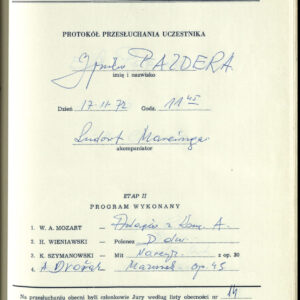 PROTOKÓŁ PRZESŁUCHANIA UCZESTNIKA
PAZDERA
imię i nazwisko
Dzień 17 11 72 Godz. 11 45
Ludort Marcinger
akompaniator
ETAP II
PROGRAM WYKONANY
1. W. A. MOZART — Adagio z konc. A.
2. H. WIENIAWSKI — Polonez D dur
3. K. SZYMANOWSKI — Mit Narcyz z op. 30
4. A. Dvořák Mazurek op. 49
Na przesłuchaniu obecni byli członkowie Jury według listy obecności nr 14